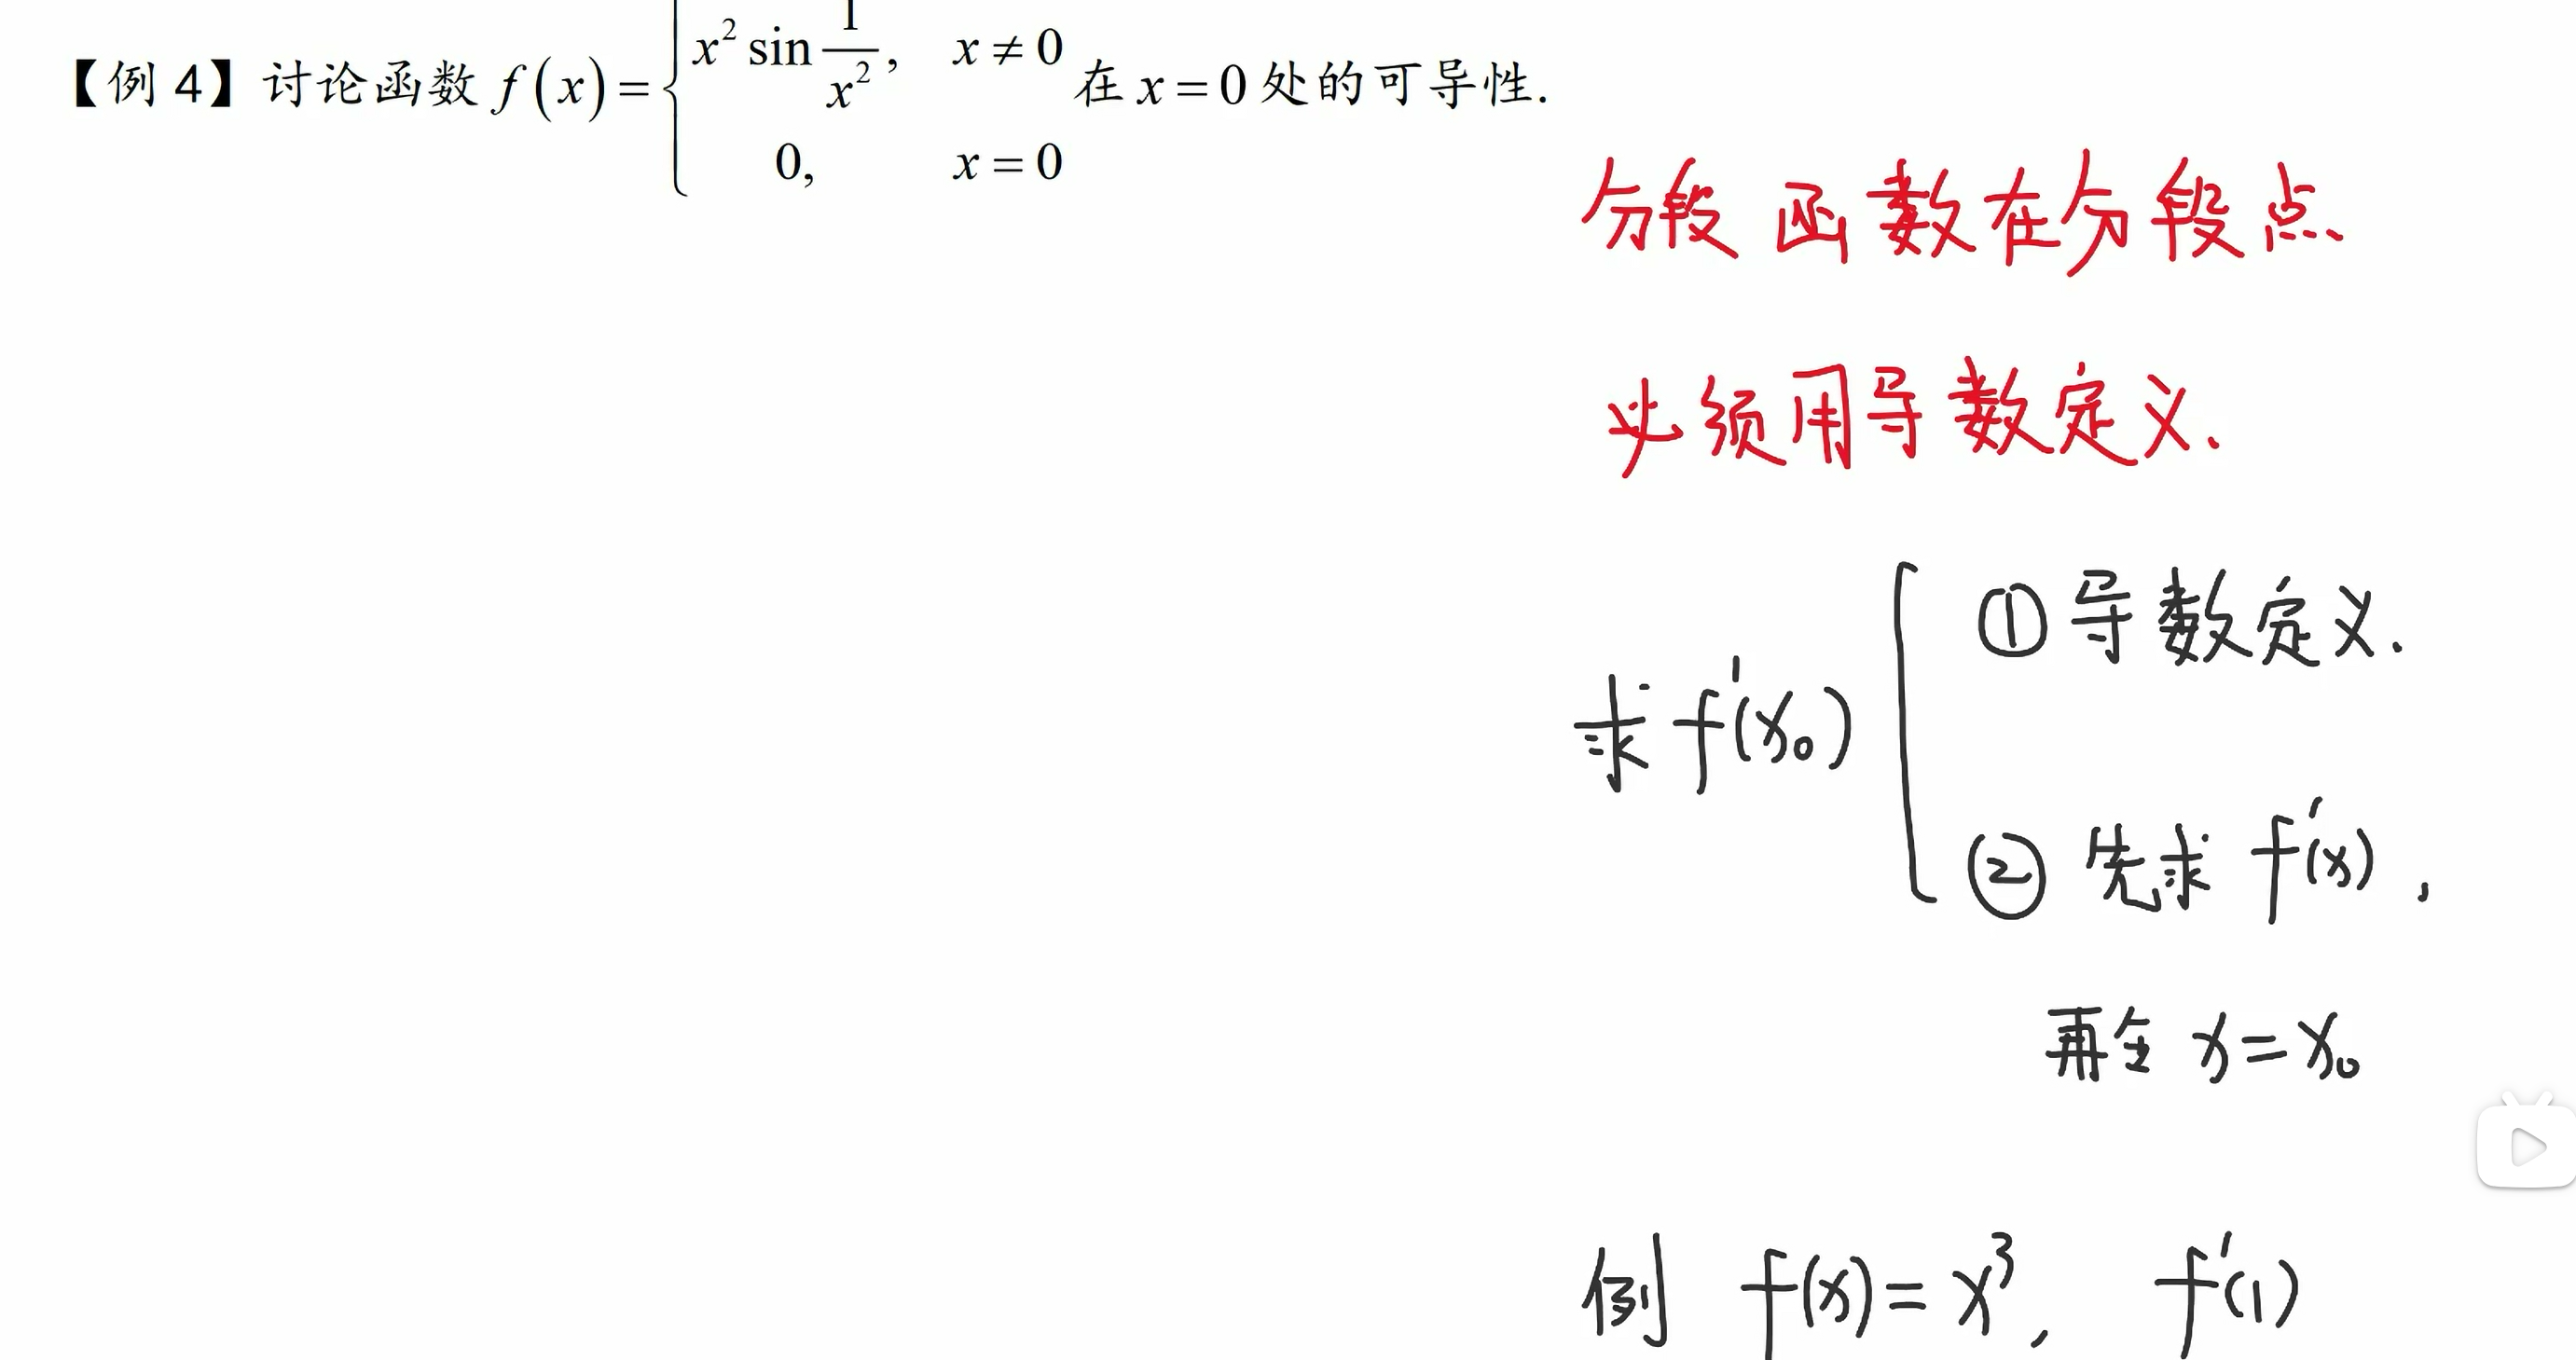 【例 4】讨论函数 f(x) = { x² sin 1/x², x ≠ 0
0, x = 0 在 x = 0 处的可导性.
分段函数在分段点
必须用导数定义.
求 f'(x₀) { ① 导数定义.
② 先求 f'(x),
再令 x = x₀
例 f(x) = x³, f'(1)